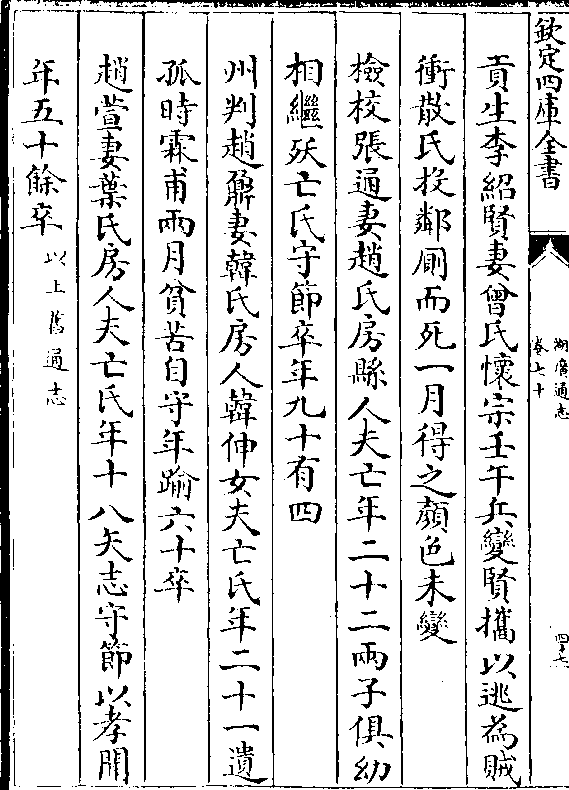 欽定四庫全書
湖廣通志
卷七十
四十七
貢生李紹賢妻曾氏懷宗壬午兵變賢攜以逃為賊
衝散氏投鄰厠而死一月得之顏色未變
檢校張通妻趙氏房縣人夫亡年二十二兩子俱幼
相繼殀亡氏守節卒年九十有四
州判趙鼐妻韓氏房人韓伸女夫亡氏年二十一遺
孤時霖甫兩月貧苦自守年踰六十卒
趙萱妻葉氏房人夫亡氏年十八矢志守節以孝聞
年五十餘卒以上舊通志